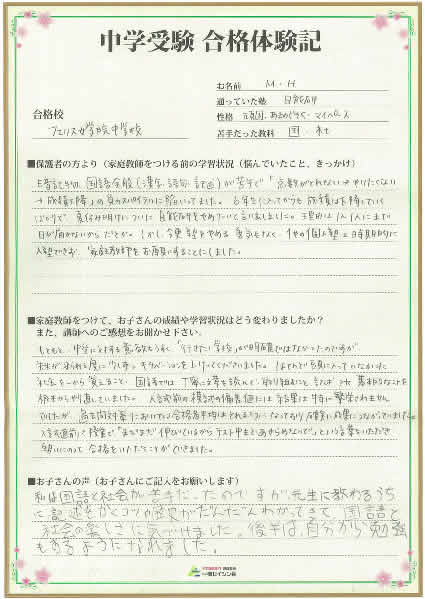 中学受験 合格体験記
お名前 M・H
通っていた塾 日能研
性格 元気、あきめぐらく、マイペース
合格校
フェリス女学院中学校
苦手だった教科 国・社
■保護者の方より（家庭教師をつける前の学習状況（悩んでいたこと、きっかけ）
国語全般（漢字、語句、記述）が苦手で「点数がとれない→やりたくない
→成績下降」の負のスパイラルに陥っていました。6年生に入ってからも成績は下降していく
ばかりで、夏休み明けについに日能研をやめたいと言い出しました。理由は1人1人にまで
目が届かないからだとか。しかし、今更塾をやめる勇気もなく、他の個人塾は時期的に
入塾できず、家庭教師をお願いすることにしました。
■家庭教師をつけて、お子さんの成績や学習状況はどう変わりましたか？
また、講師へのご感想をお聞かせ下さい。
もともと、中学に対する意欲もうすく「行きたい学校」が明確ではなかったのですが、
先生が来られる度に モチベーションを上げてくださいました。
社会を一から覚えること、国語では丁寧に文章を読んで取り組むこと、 基本的なことを
根本からやり直していきました。入試直前の模試の偏差値には結果は特に繁栄されません
でしたが、過去問対策においては合格者平均はとれるようになっており、確実に成果につながっていました。
入試直前の授業で「まだまだ伸びているからテスト中もあきらめないで」という言葉をいただき
勢いにのって合格をいただくことができました。
■お子さんの声（お子さんにご記入をお願いします）
私は国語と社会が苦手だったのですが、先生に教わるうち
に記述をかくコツや歴史がだんだんわかってきて、国語と
社会の楽しさに気づけました。後半は、自分から勉強
もするようになれました。
一橋セイシン会